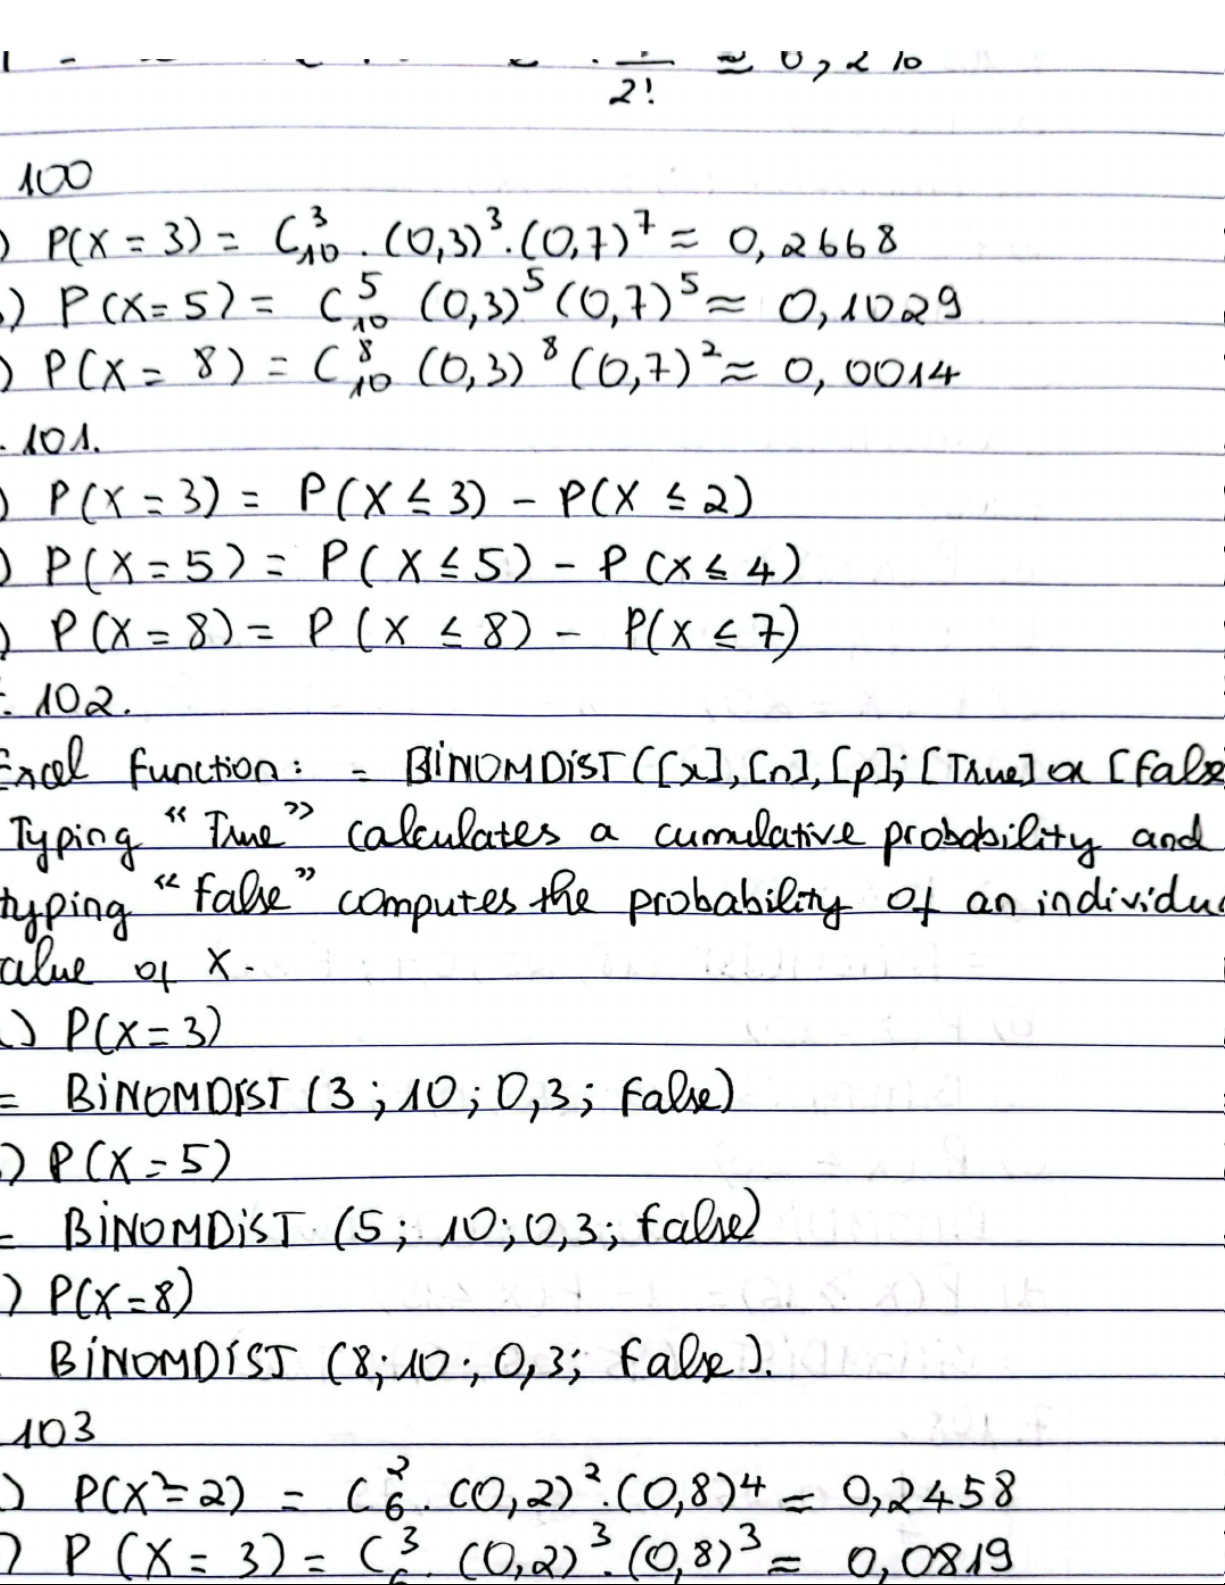 2! ≈ 0,2%
100
) P(X = 3) = C³₁₀ . (0,3)³.(0,7)⁷ ≈ 0,2668
) P(X=5) = C⁵₁₀ (0,3)⁵(0,7)⁵ ≈ 0,1029
) P(X = 8) = C⁸₁₀ (0,3)⁸(0,7)² ≈ 0,0014
. 101.
) P(X = 3) = P(X ≤ 3) - P(X ≤ 2)
) P(X = 5) = P(X ≤ 5) - P(X ≤ 4)
) P(X = 8) = P(X ≤ 8) - P(X ≤ 7)
. 102.
Excel function: = BINOMDIST([x],[n],[p];[True] or [false
Typing “True” calculates a cumulative probability and
typing “false” computes the probability of an individu
alue of X.
) P(X = 3)
= BINOMDIST (3 ; 10 ; 0,3 ; false)
) P(X = 5)
= BINOMDIST (5 ; 10 ; 0,3 ; false)
) P(X=8)
BINOMDIST (8 ; 10 ; 0,3 ; false).
103
) P(X = 2) = C²₆ . (0,2)² . (0,8)⁴ = 0,2458
) P(X = 3) = C³₆ (0,2)³ . (0,8)³ = 0,0819